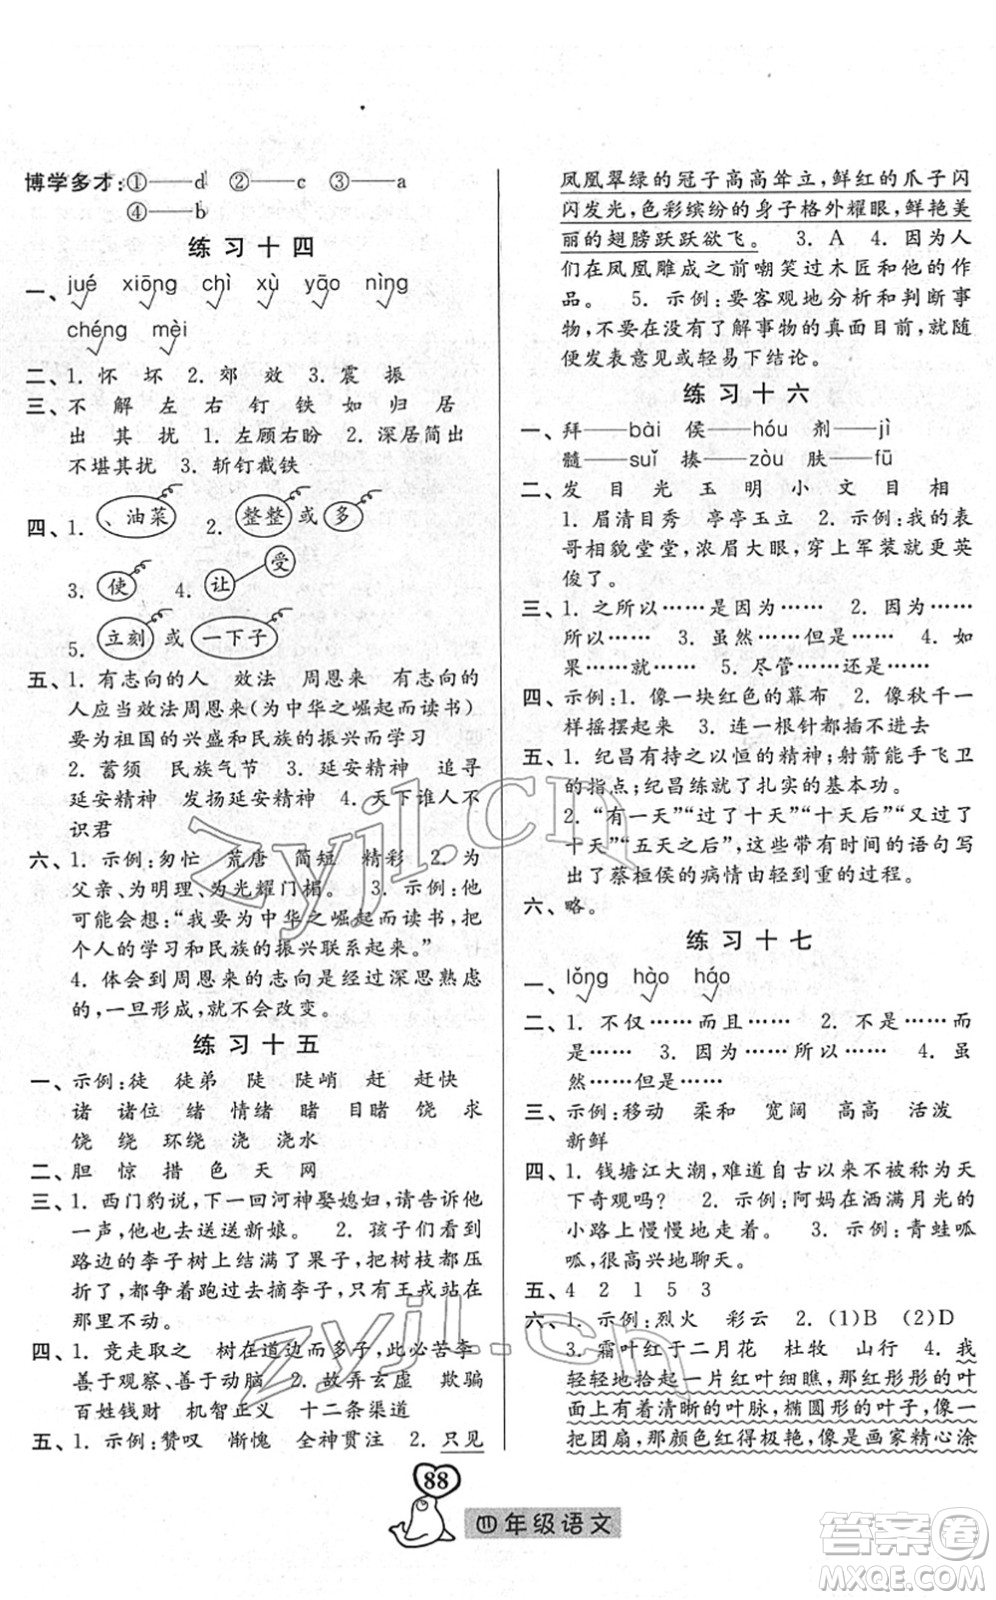 博学多才:①——d ②——c ③——a
④——b
练习十四
一、jué xiōng chì xù yāo nìng
chéng mèi
二、1. 怀 坏 2. 郊 效 3. 震 振
三、不 解 左 右 钉 铁 如 归 居
出 其 扰 1. 左顾右盼 2. 深居简出
不堪其扰 3. 斩钉截铁
四、1. 、油菜 2. 整整 或 多
3. 使 4. 让 受
5. 立刻 或 一下子
五、1. 有志向的人 效法 周恩来 有志向的
人应当效法周恩来(为中华之崛起而读书)
要为祖国的兴盛和民族的振兴而学习
2. 蓄须 民族气节 3. 延安精神 追寻
延安精神 发扬延安精神 4. 天下谁人不
识君
六、1. 示例:匆忙 荒唐 简短 精彩 2. 为
父亲、为明理、为光耀门楣。 3. 示例:他
可能会想:“我要为中华之崛起而读书,把
个人的学习和民族的振兴联系起来。”
4. 体会到周恩来的志向是经过深思熟虑
的,一旦形成,就不会改变。
练习十五
一、示例:徒 徒弟 陡 陡峭 赶 赶快
诸 诸位 绪 情绪 睹 目睹 饶 求
饶 绕 环绕 浇 浇水
二、胆 惊 措 色 天 网
三、1. 西门豹说,下一回河神娶媳妇,请告诉他
一声,他也去送送新娘。 2. 孩子们看到
路边的李子树上结满了果子,把树枝都压
折了,都争着跑过去摘李子,只有王戎站在
那里不动。
四、1. 竞走取之 树在道边而多子,此必苦李
善于观察、善于动脑 2. 故弄玄虚 欺骗
百姓钱财 机智正义 十二条渠道
五、1. 示例:赞叹 惭愧 全神贯注 2. 只见
凤凰翠绿的冠子高高耸立,鲜红的爪子闪
闪发光,色彩缤纷的身子格外耀眼,鲜艳美
丽的翅膀跃跃欲飞。 3. A 4. 因为人
们在凤凰雕成之前嘲笑过木匠和他的作
品。 5. 示例:要客观地分析和判断事
物,不要在没有了解事物的真面目前,就随
便发表意见或轻易下结论。
练习十六
一、拜——bài 侯——hóu 剂——jì
髓——suǐ 揍——zòu 肤——fū
二、发 目 光 玉 明 小 文 目 相
1. 眉清目秀 亭亭玉立 2. 示例:我的表
哥相貌堂堂,浓眉大眼,穿上军装就更英
俊了。
三、1. 之所以……是因为…… 2. 因为……
所以…… 3. 虽然……但是…… 4. 如
果……就…… 5. 尽管……还是……
四、示例:1. 像一块红色的幕布 2. 像秋千一
样摇摆起来 3. 连一根针都插不进去
五、1. 纪昌有持之以恒的精神;射箭能手飞卫
的指点;纪昌练就了扎实的基本功。
2. “有一天”“过了十天”“十天后”“又过了
十天”“五天之后”,这些带有时间的语句写
出了蔡桓侯的病情由轻到重的过程。
六、略。
练习十七
一、lǒng hào háo
二、1. 不仅……而且…… 2. 不是……而
是…… 3. 因为……所以…… 4. 虽
然……但是……
三、示例:移动 柔和 宽阔 高高 活泼
新鲜
四、1. 钱塘江大潮,难道自古以来不被称为天
下奇观吗? 2. 示例:阿妈在洒满月光的
小路上慢慢地走着。 3. 示例:青蛙呱
呱,很高兴地聊天。
五、4 2 1 5 3
六、1. 示例:烈火 彩云 2. (1)B (2)D
3. 霜叶红于二月花 杜牧 山行 4. 我
轻轻地拾起一片红叶细瞧,那红彤彤的叶
面上有着清晰的叶脉,椭圆形的叶子,像
一把团扇,那颜色红得极艳,像是画家精心涂
88
四年级语文
zyjl.cn
zyjl.cn
答案圈
MXQE.COM